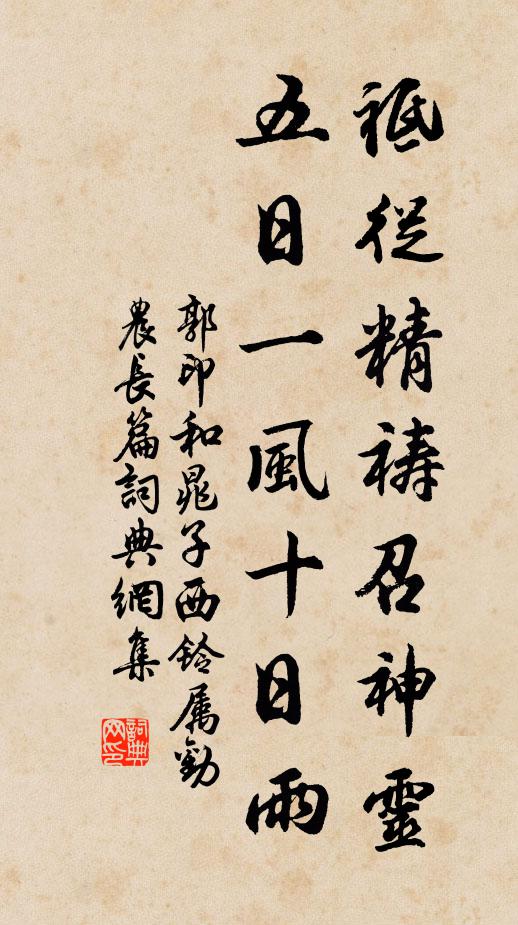 祗從精禱召神靈
五日一風十日雨
郭印和晁子西鈴属勸
農長篇詞典網集
詞典
网印